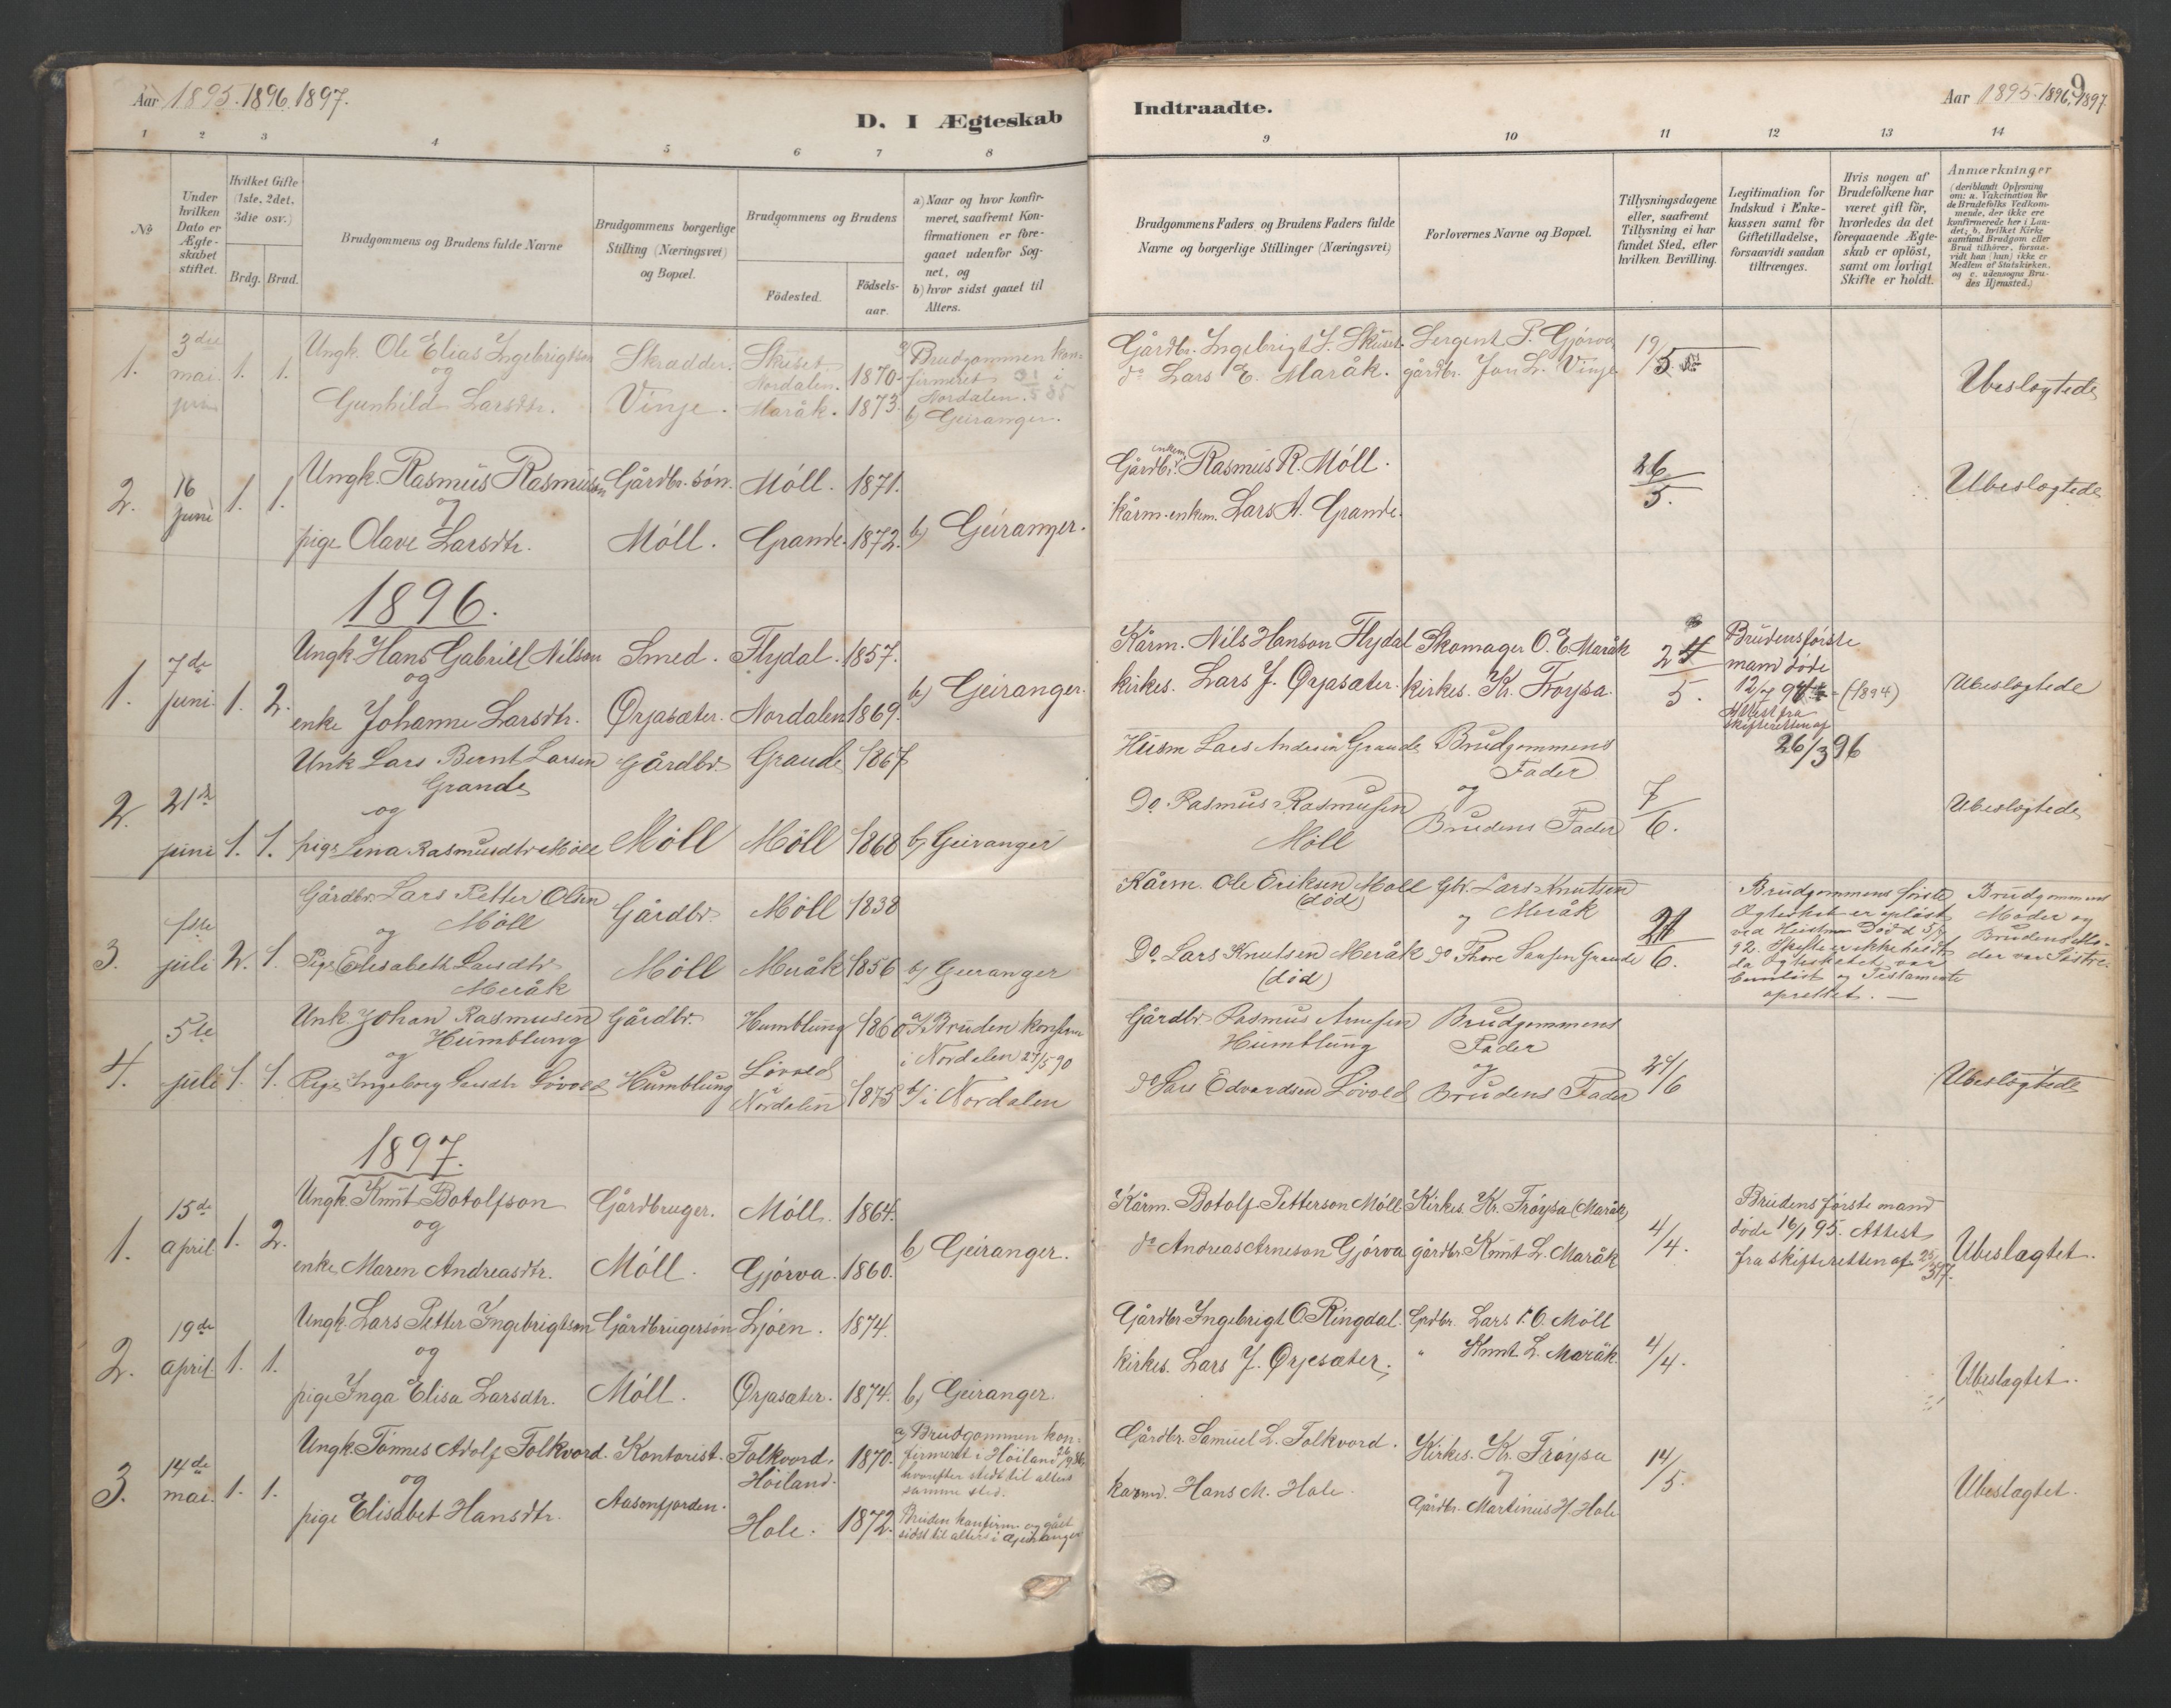 Aar 1895. 1896. 1897.
D. I Ægteskab
1 2 3 4 5 6 7 8
№
Under hvilken Dato er Ægteskabet stiftet.
Hvilket Gifte (1ste, 2det, 3die osv.)
Brdg. Brud.
Brudgommens og Brudens fulde Navne
Brudgommens borgerlige Stilling (Næringsvei) og Bopæl.
Brudgommens og Brudens
Födested.
Födselsaar.
a) Naar og hvor konfirmeret, saafremt Konfirmationen er foregaaet udenfor Sognet, og
b) hvor sidst gaaet til Alters.
1. 3die mai 1. 1.
Ungk. Ole Elias Ingebrigtson
og
Gunhild Larsdtr.
Skrædder.
Vinje.
Skuset. Nordalen. 1870.
Maråk. 1873.
a) Brudgommen konfirmeret i Nordalen.
b) Geiranger.
2. 16 juni 1. 1.
Ungk. Rasmus Rasmusson
og
pige Olave Larsdtr.
Gårdbr. søn.
Möll.
Möll. 1871.
Grande. 1872.
b) Geiranger.
1896.
1. 7de juni 1. 2.
Ungk. Hans Gabriel Nilson
og
enke Johanne Larsdtr.
Smed.
Ørjasæter.
Flydal. 1857.
Nordalen 1869.
b) Geiranger.
2. 21de juni 1. 1.
Unk Lars Bernt Larsen
Grande
og
pige Lina Rasmusdtr Möll
Gårdbr.
Möll
Grande 1867
Möll 1868
b) Geiranger
3. 1ste juli 2. 1.
Gårdbr. Lars Petter Olsen
og Möll
Pige Elisabeth Larsdtr.
Meråk
Gårdbr.
Möll
Möll 1838
Meråk 1856
b) Geiranger
4. 5te juli 1. 1.
Unk. Johan Rasmusen
Humblung
og
Pige Ingeborg Larsdtr Lövold
Gårdbr.
Humblung
Humblung 1860
Lövold i Nordalen 1875
a) Bruden konfirm i Nordalen 27/5 90
b) i Nordalen
1897.
1. 15de april 1. 2.
Ungk. Knut Botolfson
og
enke Maren Andreasdtr.
Gårdbruger.
Möll.
Möll. 1864.
Gjörva. 1860.
b) Geiranger.
2. 19de april 1. 1.
Ungk. Lars Petter Ingebrigtson
og
pige Inga Elisa Larsdtr.
Gårdbrugersön
Möll.
Ljöen. 1874.
Ørjasæter. 1874.
b) Geiranger.
3. 14de mai. 1. 1.
Ungk. Tönnes Adolf Folkvord.
og
pige Elisabet Hansdtr.
Kontorist.
Aasenfjorden.
Folkvord, Höiland. 1870.
Hole. 1872.
a) Brudgommen konfirmeret i Höiland
hvorefter sidst til alters
samme sted.
Bruden konfirm. og gået
sidst til alters i Geiranger
Indtraadte.
Aar 1895. 1896, 1897.
9
9 10 11 12 13 14
Brudgommens Faders og Brudens Faders fulde Navne og borgerlige Stillinger (Næringsvei)
Forlovernes Navne og Bopæl.
Tillysningsdagene eller, saafremt Tillysning ei har fundet Sted, efter hvilken Bevilling.
Legitimation for Indskud i Enkekassen samt for Giftetilladelse, forsaavidt saadan tiltrænges.
Hvis nogen af Brudefolkene har været gift för, hvorledes da det foregaaende Ægteskab er oplöst, samt om lovligt Skifte er holdt.
Anmærkninger
(deriblandt Oplysning om: a. Vakcination for de Brudefolks Vedkommende, der ikke ere konfirmerede her i Landet; b. hvilket Kirkesamfund Brudgom eller Brud tilhörer, forsaavidt han (hun) ikke er Medlem af Statskirken, og c. udensogns Brudes Hjemsted.)
Gårdbr. Ingebrigt J. Skuset.
do Lars E. Maråk.
Sergent P. Gjörva
gårdbr. Jon L. Vinje
19/5.
Ubeslægtede
Gårdbr. enkem. Rasmus R. Möll.
kårm. enkem. Lars A. Grande.
26/5.
Ubeslægtede
Kårm. Nils Hanson Flydal
kirkes. Lars J. Ørjasæter.
Skomager O. E. Maråk
kirkes. Kr. Fröysa.
24/5.
Brudens förste
mand döde
(1894)
Attest fra
skifteretten af
26/3 96
Ubeslægtede
Husm Lars Andersen Grande
Do. Rasmus Rasmusen
Möll
Brudgommens
Fader
og
Brudens Fader
7/6.
Ubeslægtede
Kårm. Ole Eriksen Möll
(död)
Do. Lars Knutsen Meråk
(död)
Gbr. Lars Knutsen
og Meråk
Do Thore Larsen Grande
21/6.
Brudgommens förste
Ægteskab er oplöst
ved Hustruens Död d.
92. Skifte er ikke holdt
da Ægteskabet var
barnlöst og Testamente
oprettet.
Brudgommens
Moder og
Brudens Moder
var Söstre.
Gårdbr. Rasmus Arnesen
Humblung
Do Lars Edvardsen Lövold
Brudgommens
Fader
og
Brudens Fader
21/6
Ubeslægtede
Kårm. Botolf Petterson Möll
do Andreas Arneson Gjörva
Kirkes. Kr. Fröysa (Maråk)
gårdbr. Knut L. Maråk
4/4.
Brudens förste mand
döde 16/1 95. Attest
fra skifteretten af
Ubeslægtet.
Gårdbr. Ingebrigt O. Ringdal.
kirkes. Lars J. Ørjesæter.
Gårdbr. Lars P. O. Möll
" Knut L. Maråk
4/4.
Ubeslægtet.
Gårdbr. Samuel L. Folkvord.
kårm. Hans M. Hole.
Kirkes. Kr. Fröysa
og
Gårdbr. Martinus H. Hole
14/5.
Ubeslægtet.